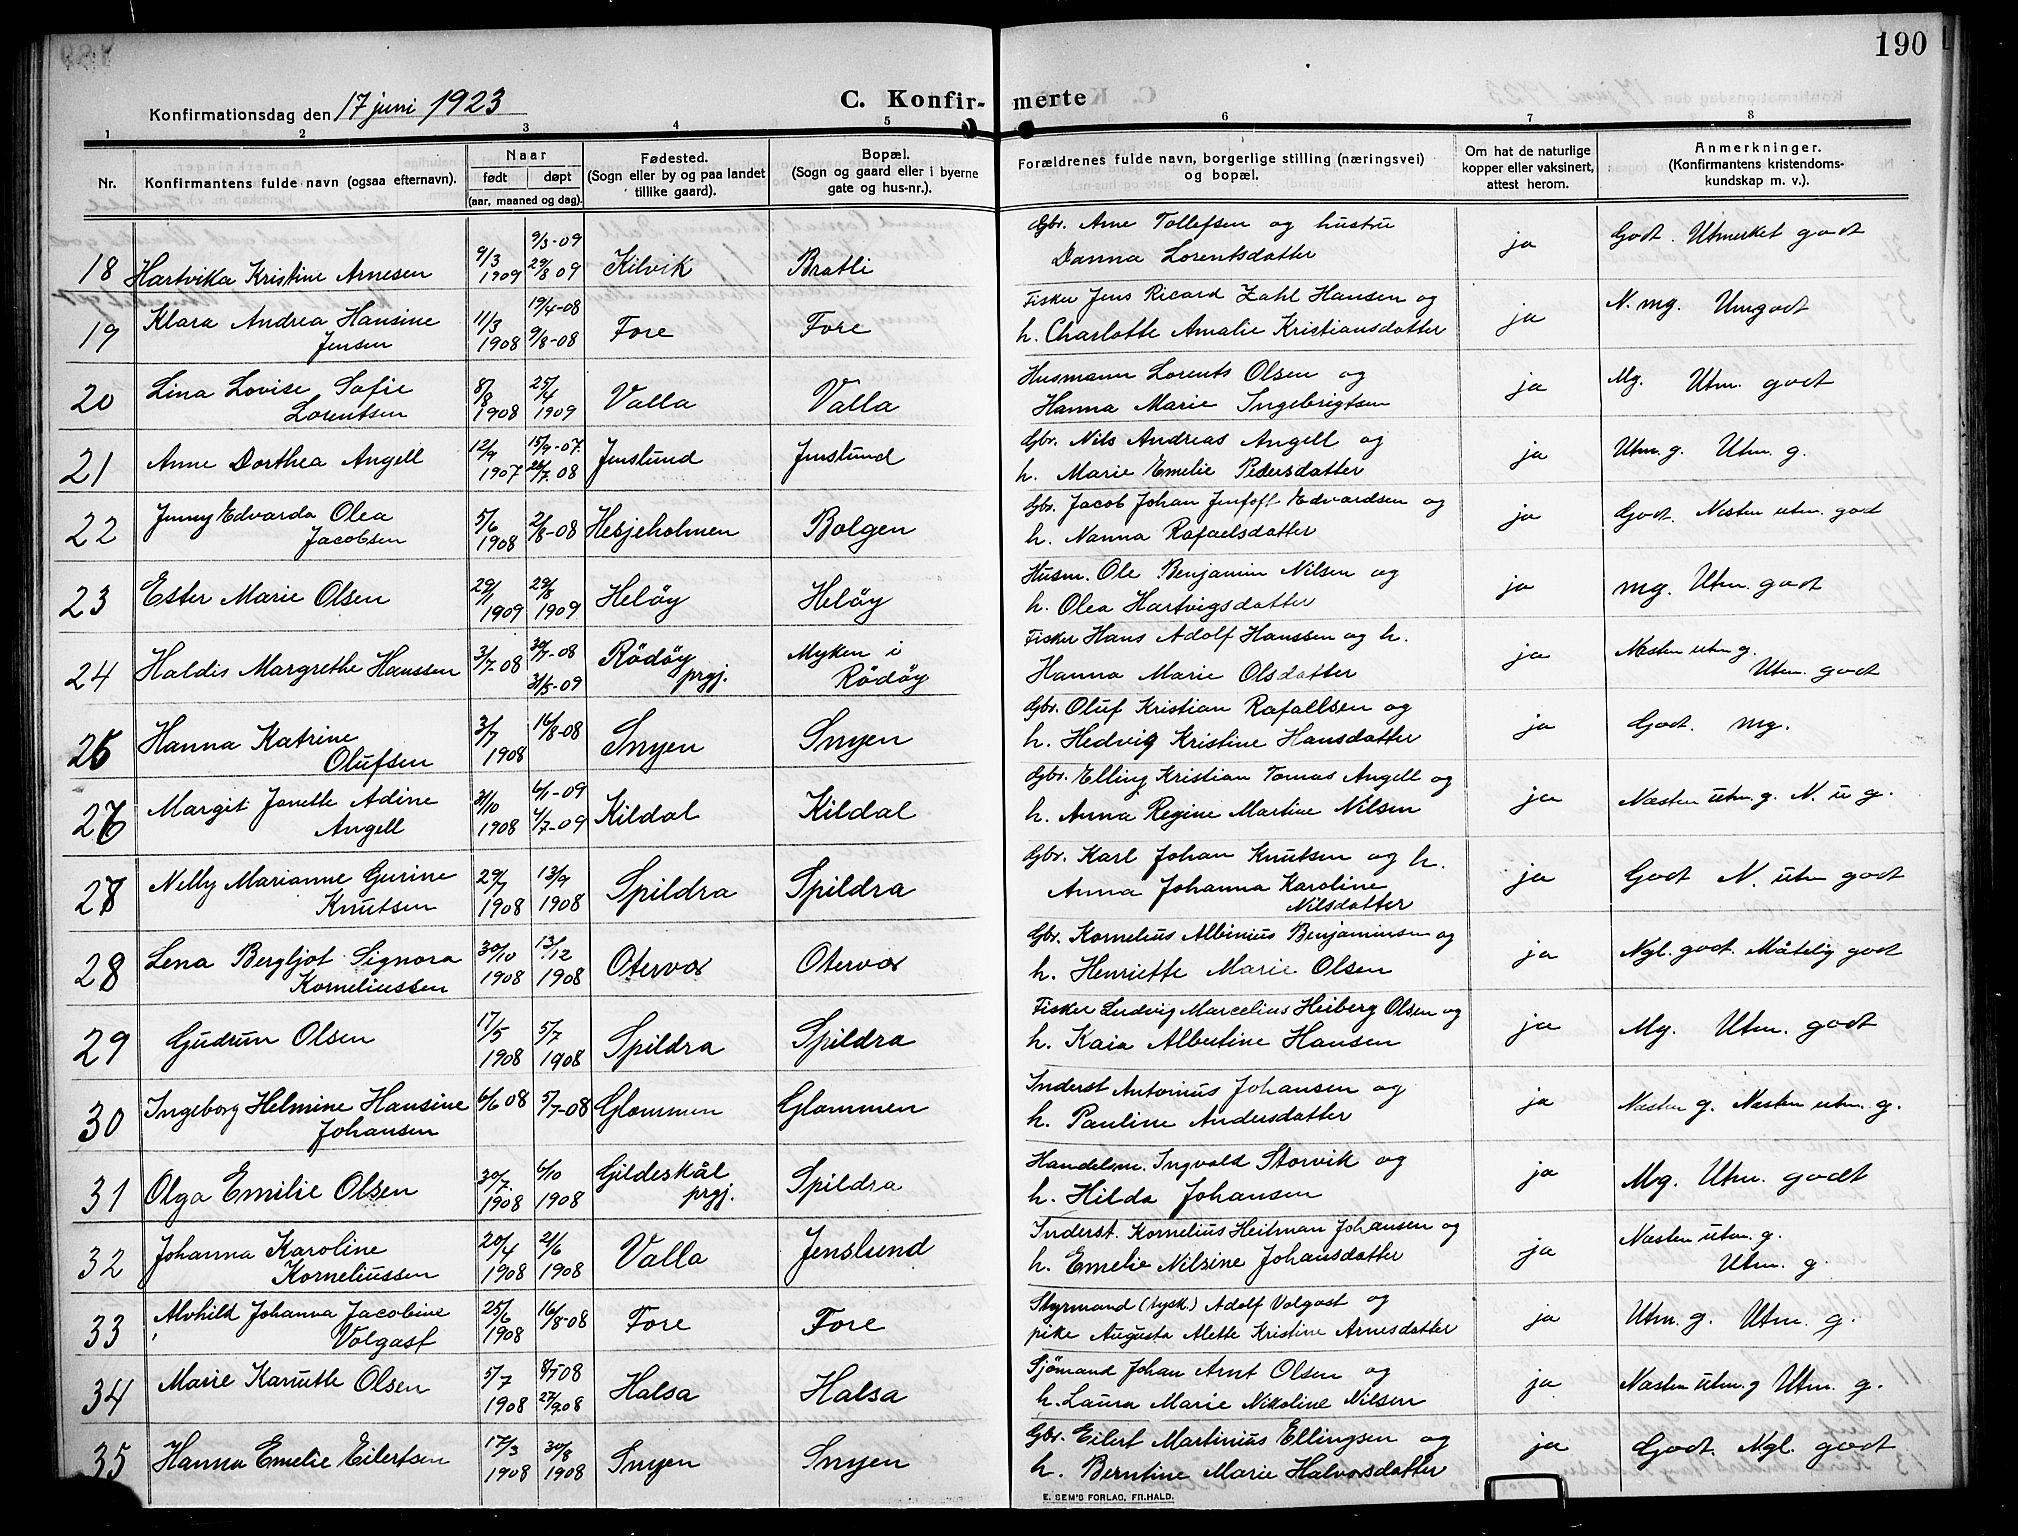 190
C. Konfirmerte
Konfirmationsdag den 17 juni 1923
1 2 3 4 5 6 7 8
Nr. Konfirmantens fulde navn (ogsaa efternavn). Naar født døpt (aar, maaned og dag). Fødested. (Sogn eller by og paa landet tillike gaard). Bopæl. (Sogn og gaard eller i byerne gate og hus-nr.). Forældrenes fulde navn, borgerlige stilling (næringsvei) og bopæl. Om hat de naturlige kopper eller vaksinert, attest herom. Anmerkninger. (Konfirmantens kristendoms-kundskap m. v.).
18 Hartvika Kristine Arnesen 9/3 1909 9/3-09 29/8 09 Kilvik Bratli Gbr. Arne Tollefsen og hustru Danna Lorentsdatter ja Godt. Utmerket godt
19 Klara Andrea Hansine Jensen 11/3 1908 19/4-08 9/8-08 Fore Fore Fisker Jens Ricard Zahl Hansen og h. Charlotte Amalie Kristiansdatter ja N. mg. Utm godt
20 Lina Lovise Sofie Lorentsen 8/8 1908 25/4 1909 Valla Valla Husmann Lorents Olsen og Hanna Marie Ingebrigtsen ja Mg. Utm. godt
21 Anne Dorthea Angell 12/9 1907 15/9-07. 26/7.08 Jenslund Jenslund Gbr. Nils Andreas Angell og h. Marie Emelie Pedersdatter ja Utm. g. Utm. g.
22 Jenny Edvarda Olea Jacobsen 5/6 1908 2/8-08 Hesjeholmen Bolgen Gbr. Jacob Johan Jentoft Edvardsen og h. Nanna Rafaelsdatter ja Godt. Næsten utm. godt
23 Ester Marie Olsen 29/1 1909 29/8 1909 Heløy Heløy Husm. Ole Benjamin Nilsen og h. Olea Hartvigsdatter ja mg. Utm. godt
24 Haldis Margrethe Hanssen 3/7-08 30/7-08 31/5-09 Rödöy prgj. Myken i Rödöy Fisker Hans Adolf Hanssen og h. Hanna Marie Olsdatter ja Næsten utm g. Utm. godt
26 Hanna Katrine Olufsen 3/7 1908 16/8-08 Inyen Inyen Gbr. Oluf Kristian Rafaelsen og h. Hedvig Kristine Hansdatter ja Godt. mg.
27 Margit Janette Adine Angell 31/10 1908 6/1-09 4/7-09 Kildal Kildal Gbr. Elling Kristian Tomas Angell og h. Anna Regine Martine Nilsen ja Næsten utm. g. N. u g.
27 Nelly Marianne Gurine Knutsen 29/7 1908 13/9 1908 Spildra Spildra Gbr. Karl Johan Knutsen og h. Anna Johanna Karoline Nilsdatter ja Godt N. utm godt
28 Lena Bergljot Signora Korneliussen 30/10 1908 13/12 1908 Otervær Otervær Gbr. Kornelius Albinius Benjaminsen og h. Henriette Marie Olsen ja Ngl. godt. Måtelig godt
29 Gudrun Olsen 17/5 1908 5/7 1908 Spildra Spildra Fisker Ludvig Marcelius Heiberg Olsen og h. Kaia Albertine Hansen ja Mg. Utm. godt
30 Ingeborg Helmine Hansine Johansen 6/6 08 5/7-08 Glommen Glommen Inderst Antonius Johansen og h. Pauline Andersdatter ja Næsten g. Næsten utm. g.
31 Olga Emilie Olsen 30/7. 1908 6/10 1908 Gildeskål prgj. Spildra Handelsm. Ingvald Storvik og h. Hilda Johansen ja Mg. Utm. godt
32 Johanna Karoline Korneliussen 20/4 1908 21/6 1908 Valla Jenslund Inderst. Kornelius Heitman Johansen og h. Emelie Nilsine Johansdatter ja Næsten utm. g. Utm. g.
33 Alvhild Johanna Jacobine Volgast 25/6 1908 16/8-08 Fore Fore Styrmand (tysk.) Adolf Volgast og pike Augusta Alette Kristine Arnesdatter ja Utm. g. Utm. g.
34 Marie Kanutte Olsen 5/7 1908 27/9 08 Halsa Halsa Sjömand Johan Arnt Olsen og h. Laura Marie Nikoline Nilsen ja Næsten utm. g Utm. g.
35 Hanna Emelie Eilertsen 17/3 1908 30/8 1908 Inyen Inyen Gbr. Eilert Martinius Ellingsen og h. Berntine Marie Halvorsdatter ja Godt. Ngl. godt
E. SEM'S FORLAG, FR.HALD.